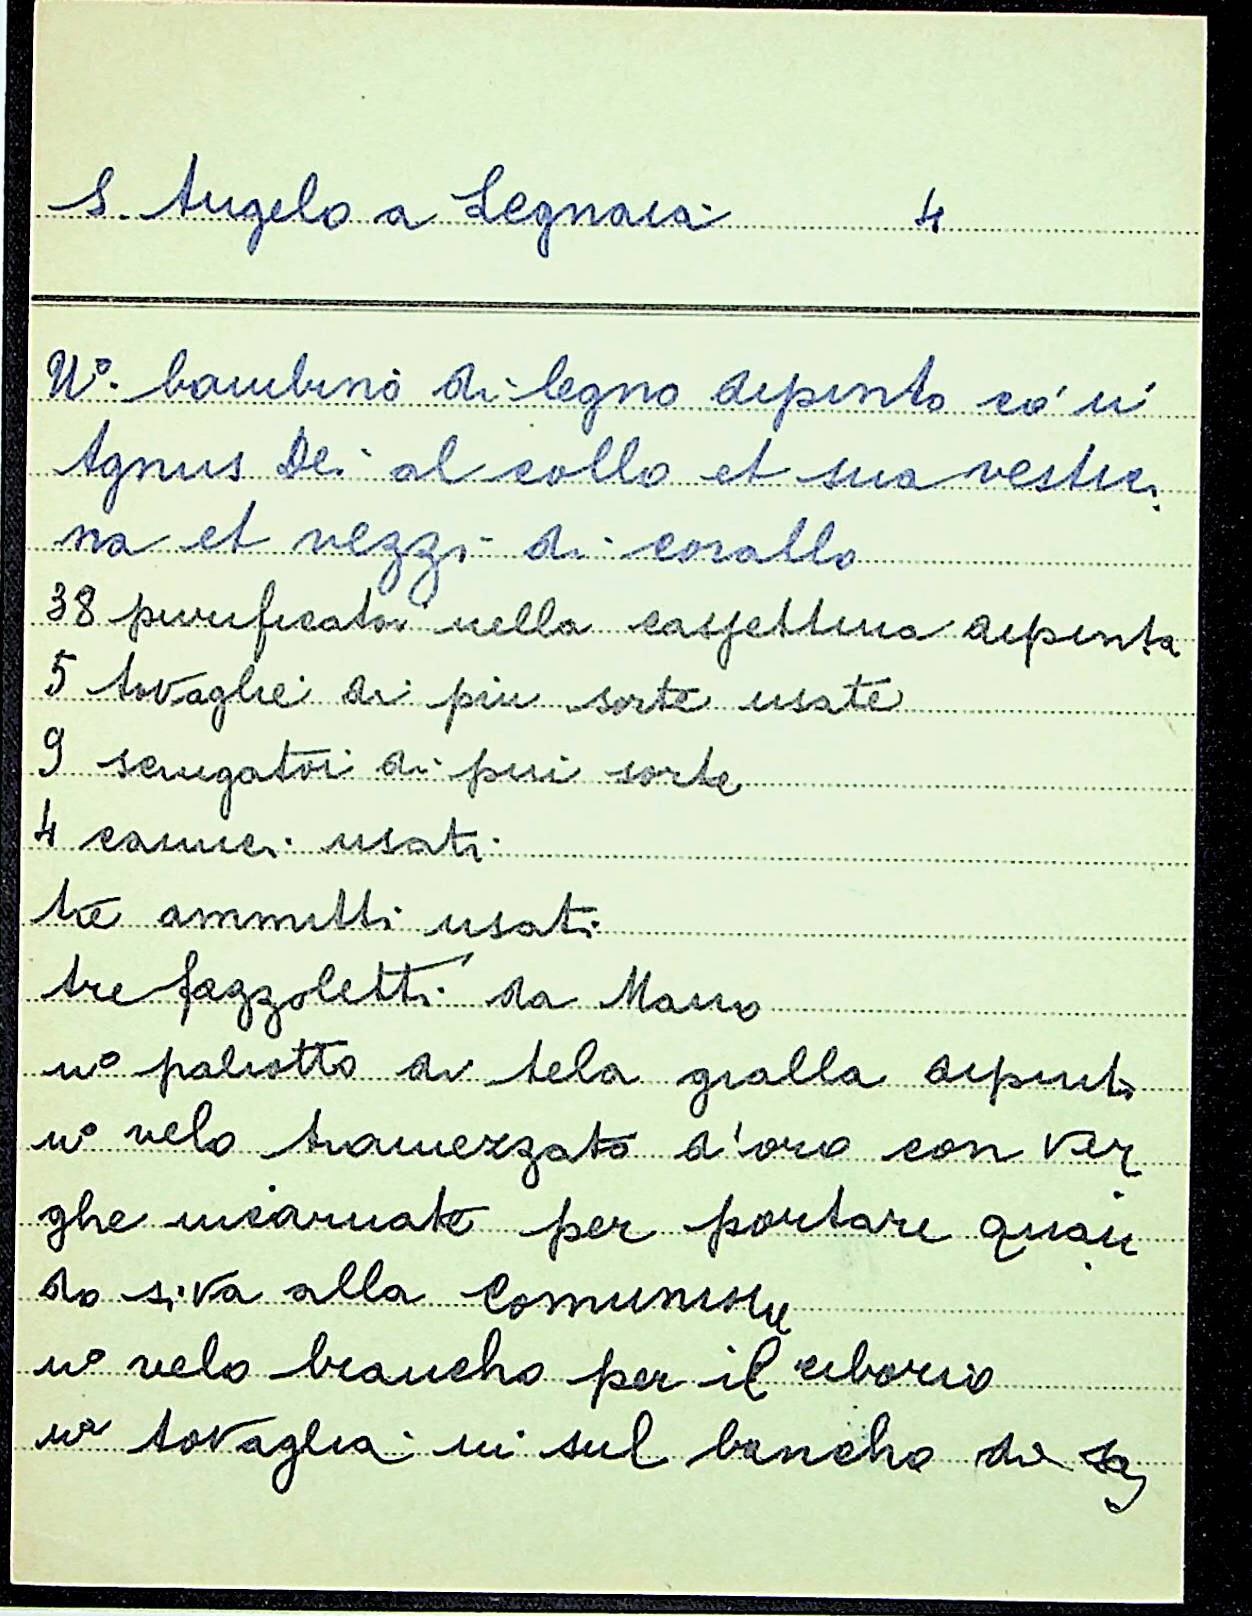 S. Angelo a Legnaia 4
Uº. bambino di legno dipinto co' u'
Agnus Dei al collo et sua vestici
na et vezzi di corallo
38 purificatoi nella cassettina dipinta
5 tovaglie di piu sorte usate
9 sciugatoi di piu sorte
4 camici usati
tre ammitti usati
tre fazzoletti da Mano
uº paliotto di tela gialla dipinta
uº velo tramezzato d'oro con ver
ghe incarnate per portare quan
do si va alla Comunione
uº velo biancho per il ciborio
uª tovaglia in sul bancho di